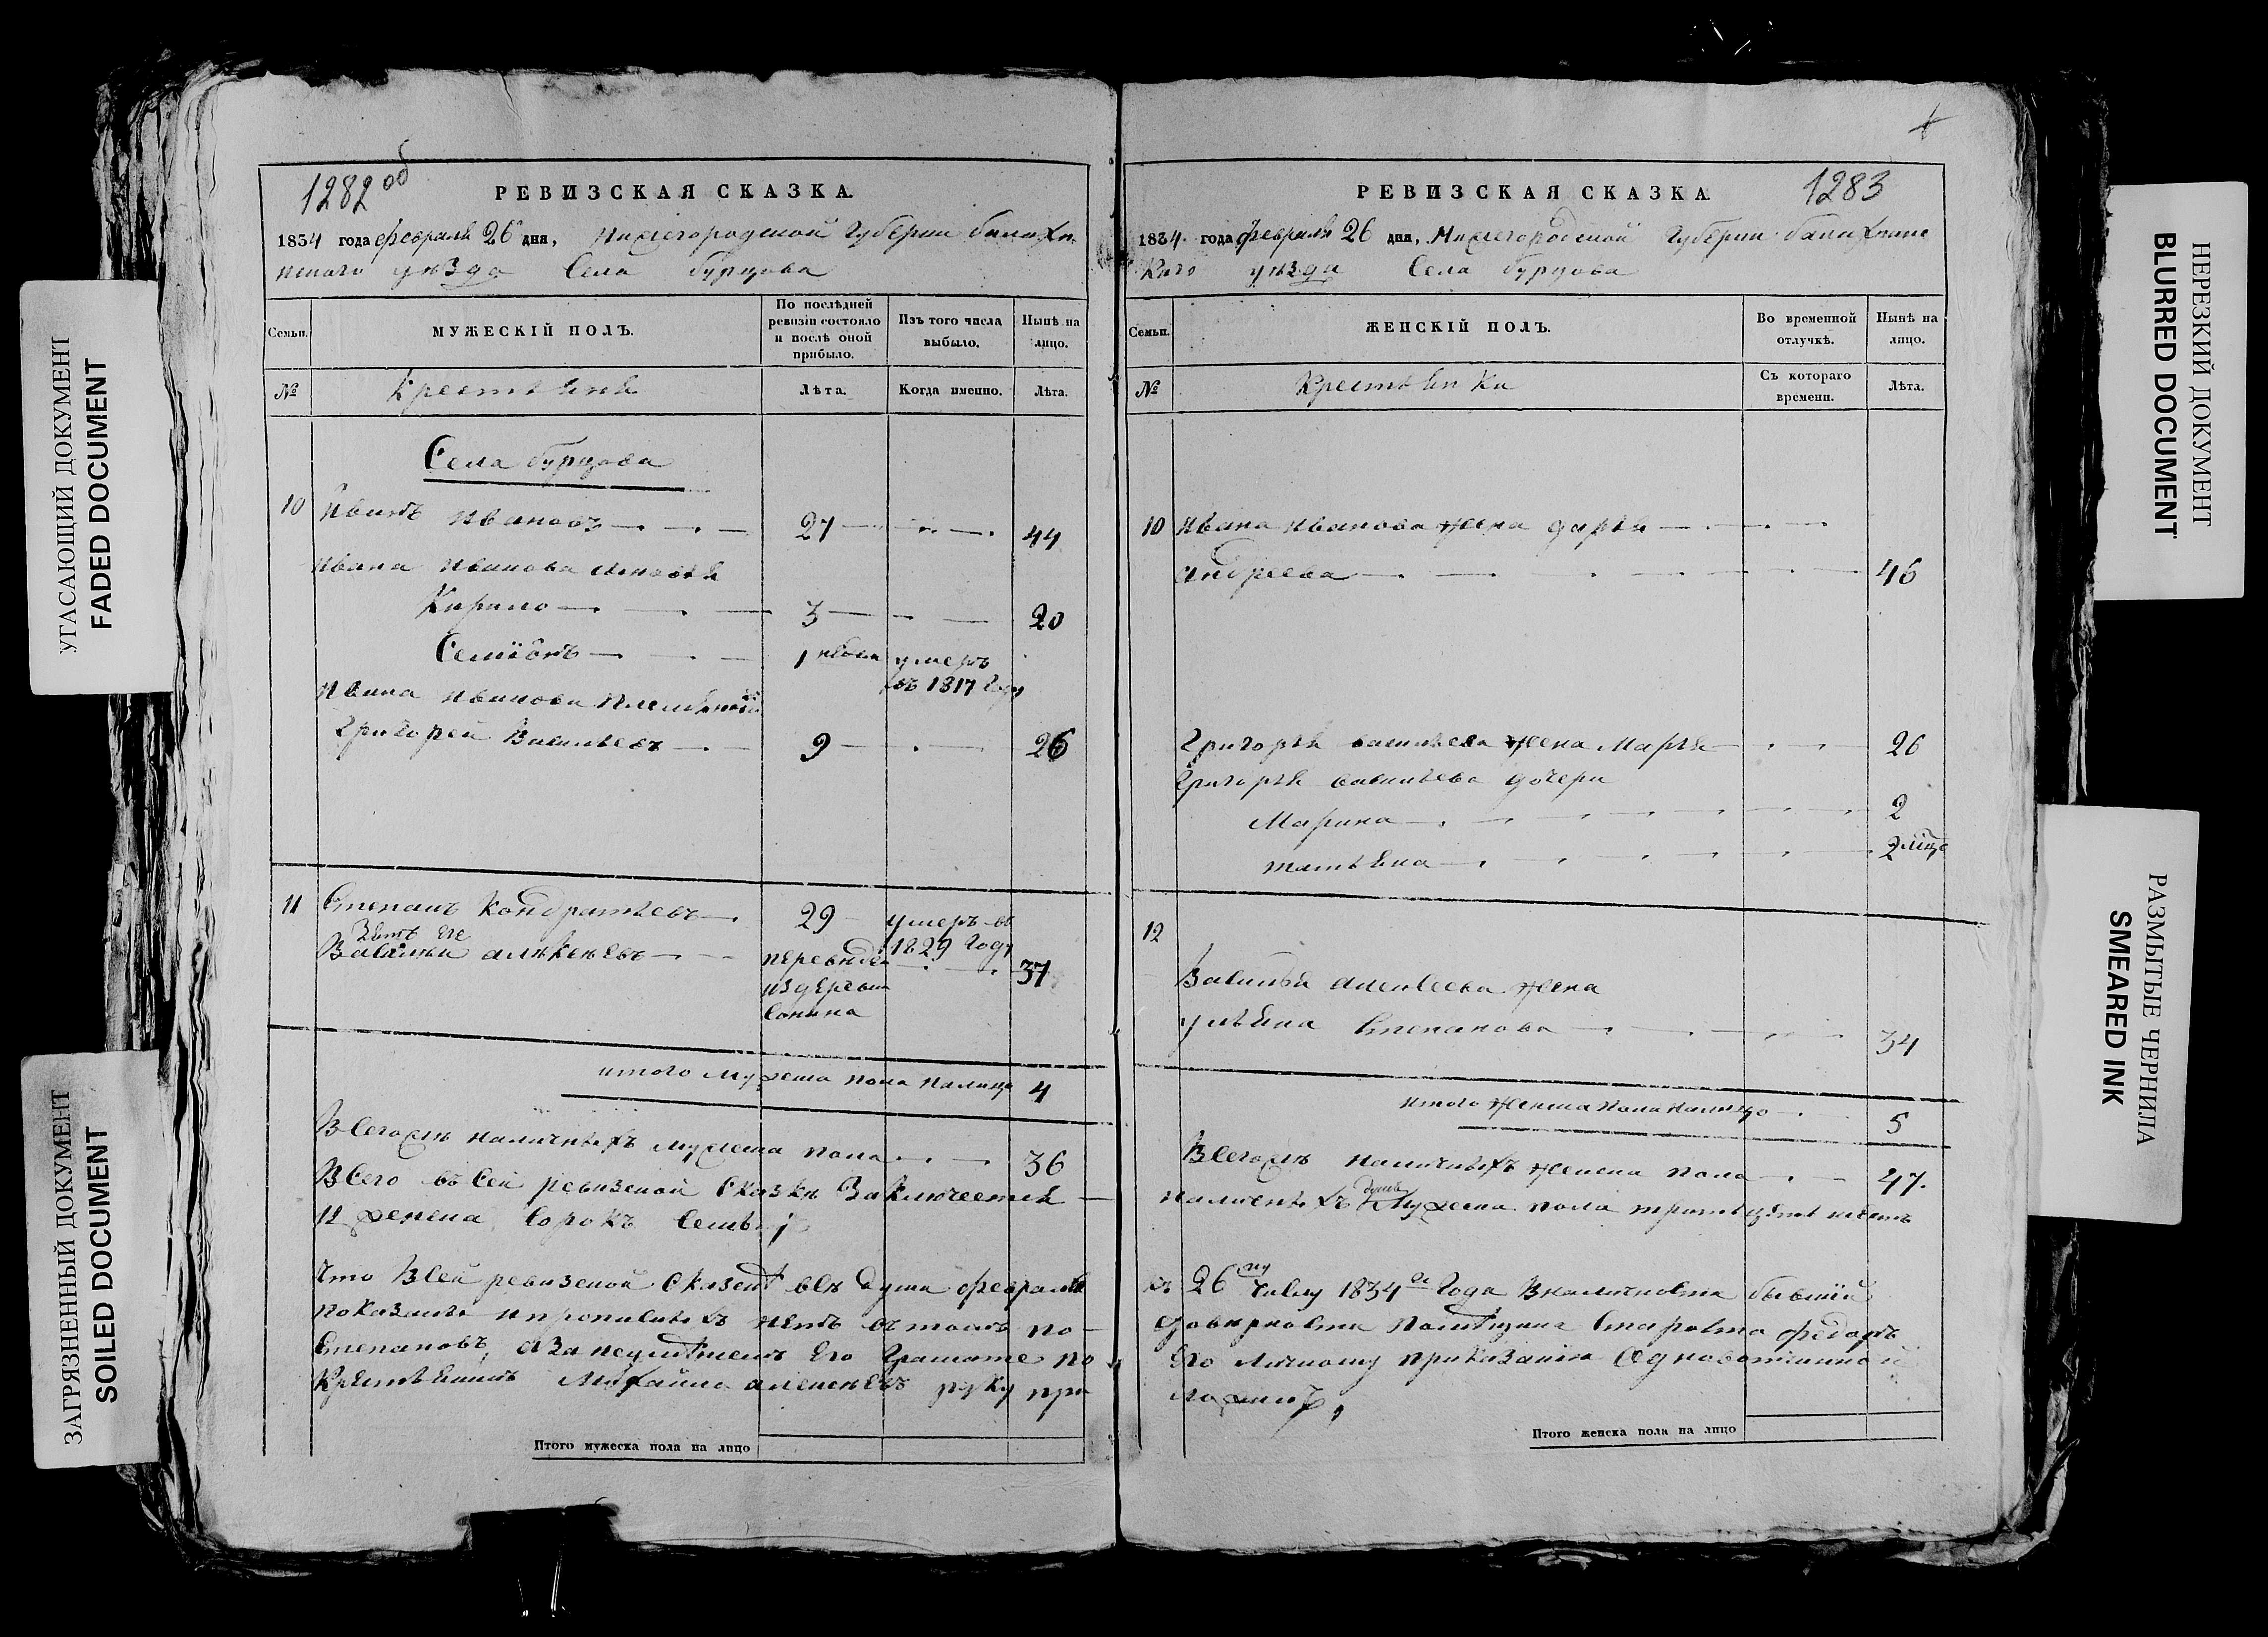 УГАСАЮЩИЙ ДОКУМЕНТ
FADED DOCUMENT
ЗАГРЯЗНЕННЫЙ ДОКУМЕНТ
SOILED DOCUMENT
1282 об
РЕВИЗСКАЯ СКАЗКА.
1834 года февраля 26 дня, Нижегородской Губерни балахн
скаго уѣзда Села бурцова
Семьи.
МУЖЕСКІЙ ПОЛЪ.
По послѣдней
ревизіи состояло
и послѣ оной
прибыло.
Изъ того числа
выбыло.
Нынѣ на
лицо.
№
Крестьяне
Лѣта.
Когда именно.
Лѣта.
Села бурцова
10 Иванъ Ивановъ 27 44
Ивана Иванова сыновья
Кирило 3 20
Семіонъ 1 умеръ
въ 1817 году
Ивана Иванова племянникъ
Григорей Васильевъ 9 26
11 Степанъ Кондратьевъ 29 умеръ въ
1829 году
Зять его
Василей алѣксѣевъ переведен 37
из деревни
Сонина
итого мужеска пола налицо 4
Всегожъ наличныхъ мужеска пола 36
Всего въ сей ревизской Сказки Заключается
И женска Сорокъ Семь
Что Всей ревизской Сказкѣ всѣ души февраля
показаны и прописныхъ нѣтъ въ томъ по-
Степановъ, А За неумѣниемъ Его Грамоте по
Крестьянинъ Михайла алексѣевъ руку при
Итого мужеска пола на лицо
1283
РЕВИЗСКАЯ СКАЗКА.
1834. года февраля 26 дня, Нижегородской Губерни балахнинс
Каго уѣзда Села бурцова
Семьи.
ЖЕНСКІЙ ПОЛЪ.
Во временной
отлучкѣ.
Нынѣ на
лицо.
№
Крестьянки
Съ котораго
времени.
Лѣта.
10 Ивана Иванова жена дарья
андреева 46
Григорья васильева жена Марья 26
Григорья васильева дочери
Марина 2
татьяна 2 мѣца
12
Василья алексеева жена
ульяна Степанова 34
итого женска пола налицо 5
Всегожъ наличныхъ женска пола 47.
наличныхъ душъ Мужеска пола тритцать шесть
къ 26му числу 1834 года Вналичности бывшіи
довѣрности помѣщика Староста федоръ
Его личному приказанію Одновотчинной
ложилъ,
Итого женска пола на лицо
НЕРЕЗКИЙ ДОКУМЕНТ
BLURRED DOCUMENT
РАЗМЫТЫЕ ЧЕРНИЛА
SMEARED INK